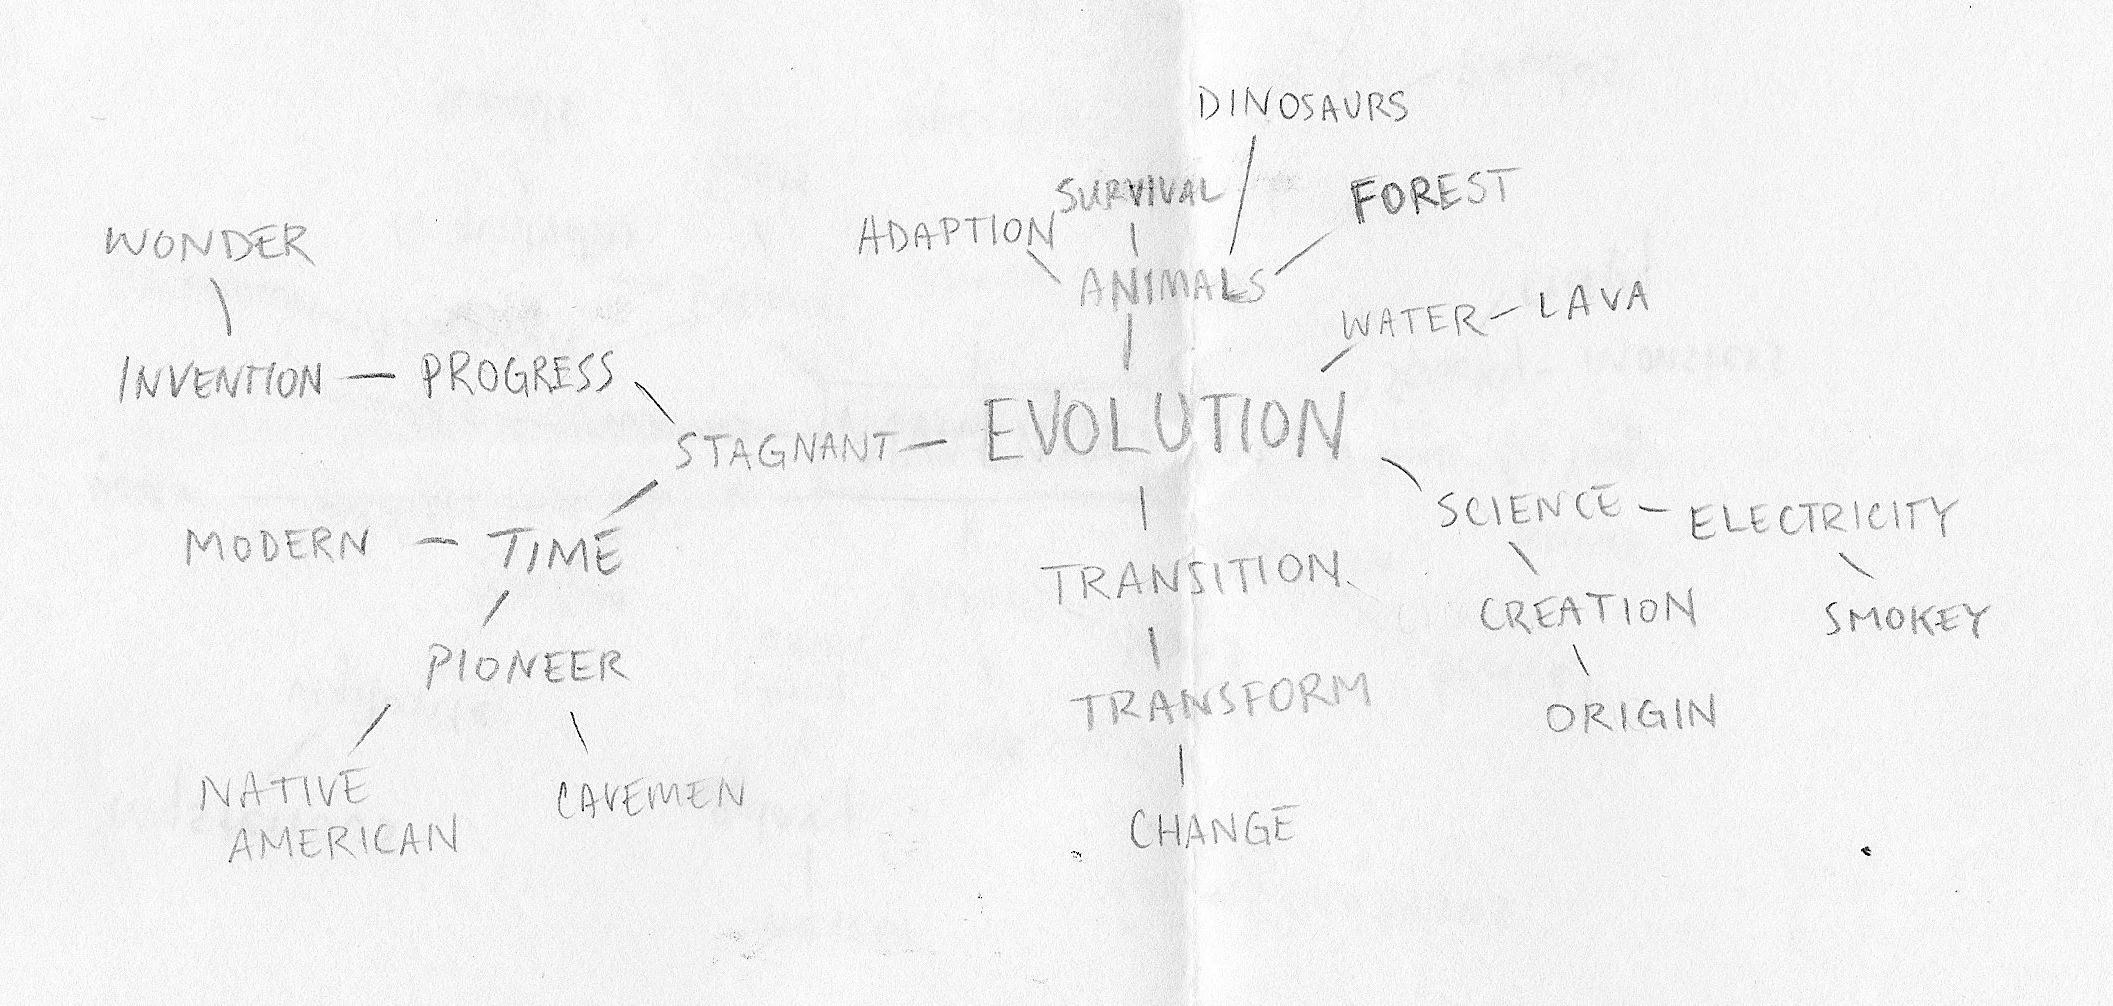 DINOSAURS
SURVIVAL
FOREST
ADAPTION
WONDER
ANIMALS
WATER - LAVA
INVENTION - PROGRESS
STAGNANT - EVOLUTION
SCIENCE - ELECTRICITY
MODERN - TIME
TRANSITION
CREATION
SMOKEY
PIONEER
TRANSFORM
ORIGIN
NATIVE
AMERICAN
CAVEMEN
CHANGE